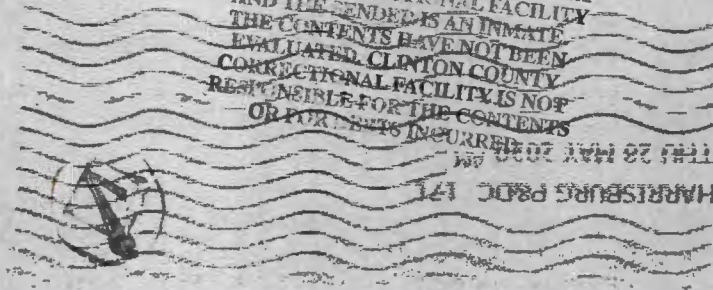 FACILITY
AND THE SENDER IS AN INMATE.
THE CONTENTS HAVE NOT BEEN
EVALUATED. CLINTON COUNTY
CORRECTIONAL FACILITY IS NOT
RESPONSIBLE FOR THE CONTENTS
OR FOR DEBTS INCURRED.
MAR
HARRISBURG P&DC 171